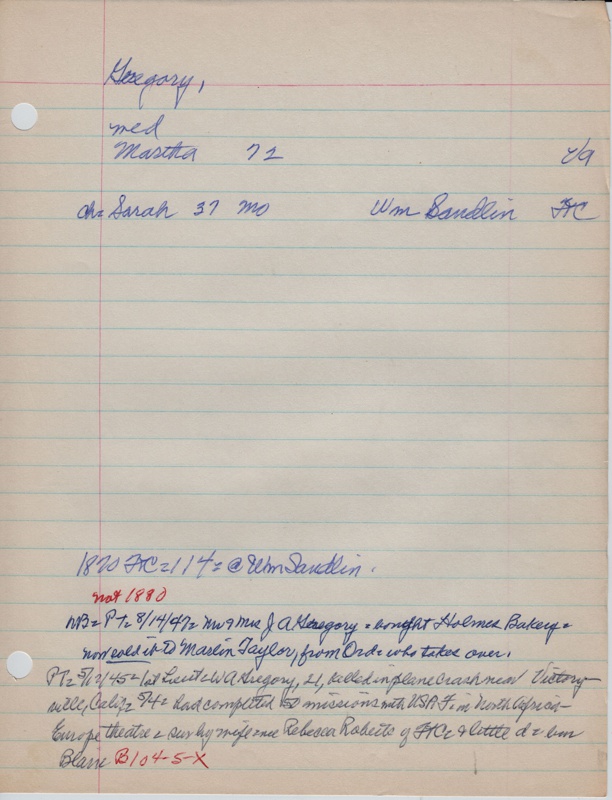 Gregory,
med
Martha 72 Va
ch= Sarah 37 Mo Wm Sandlin FtC
1870 FtC=114= @ Wm Sandlin.
not 1880
NB= PT= 8/14/47= Mr & Mrs J A Gregory = bought Holmes Bakery=
now sold it to Marlin Taylor, from Ord= who takes over.
PT= 5/17/45= 1st Lieut= W A Gregory, 21, killed in plane crash near Victory-
ville, Calif= 5/14= had completed 50 missions with USAF in North African-
Europe theatre= sur by wife nee Rebecca Roberts of FtC= & little d=
Blane B104-5-X